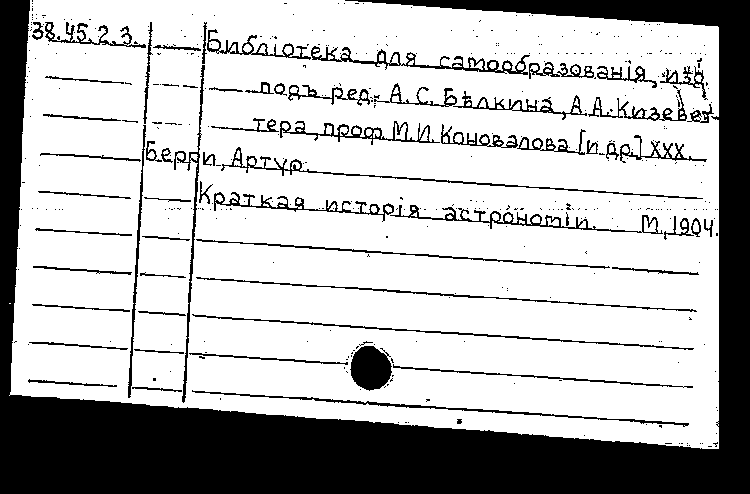 38.45.2.3. Библіотека для самообразованія, изд.
подъ ред. А. С. Бѣлкина, А. А. Кизевет-
тера, проф. М. И. Коновалова [и др.] XXX.
Берри, Артур.
Краткая исторія астрономіи. М., 1904.